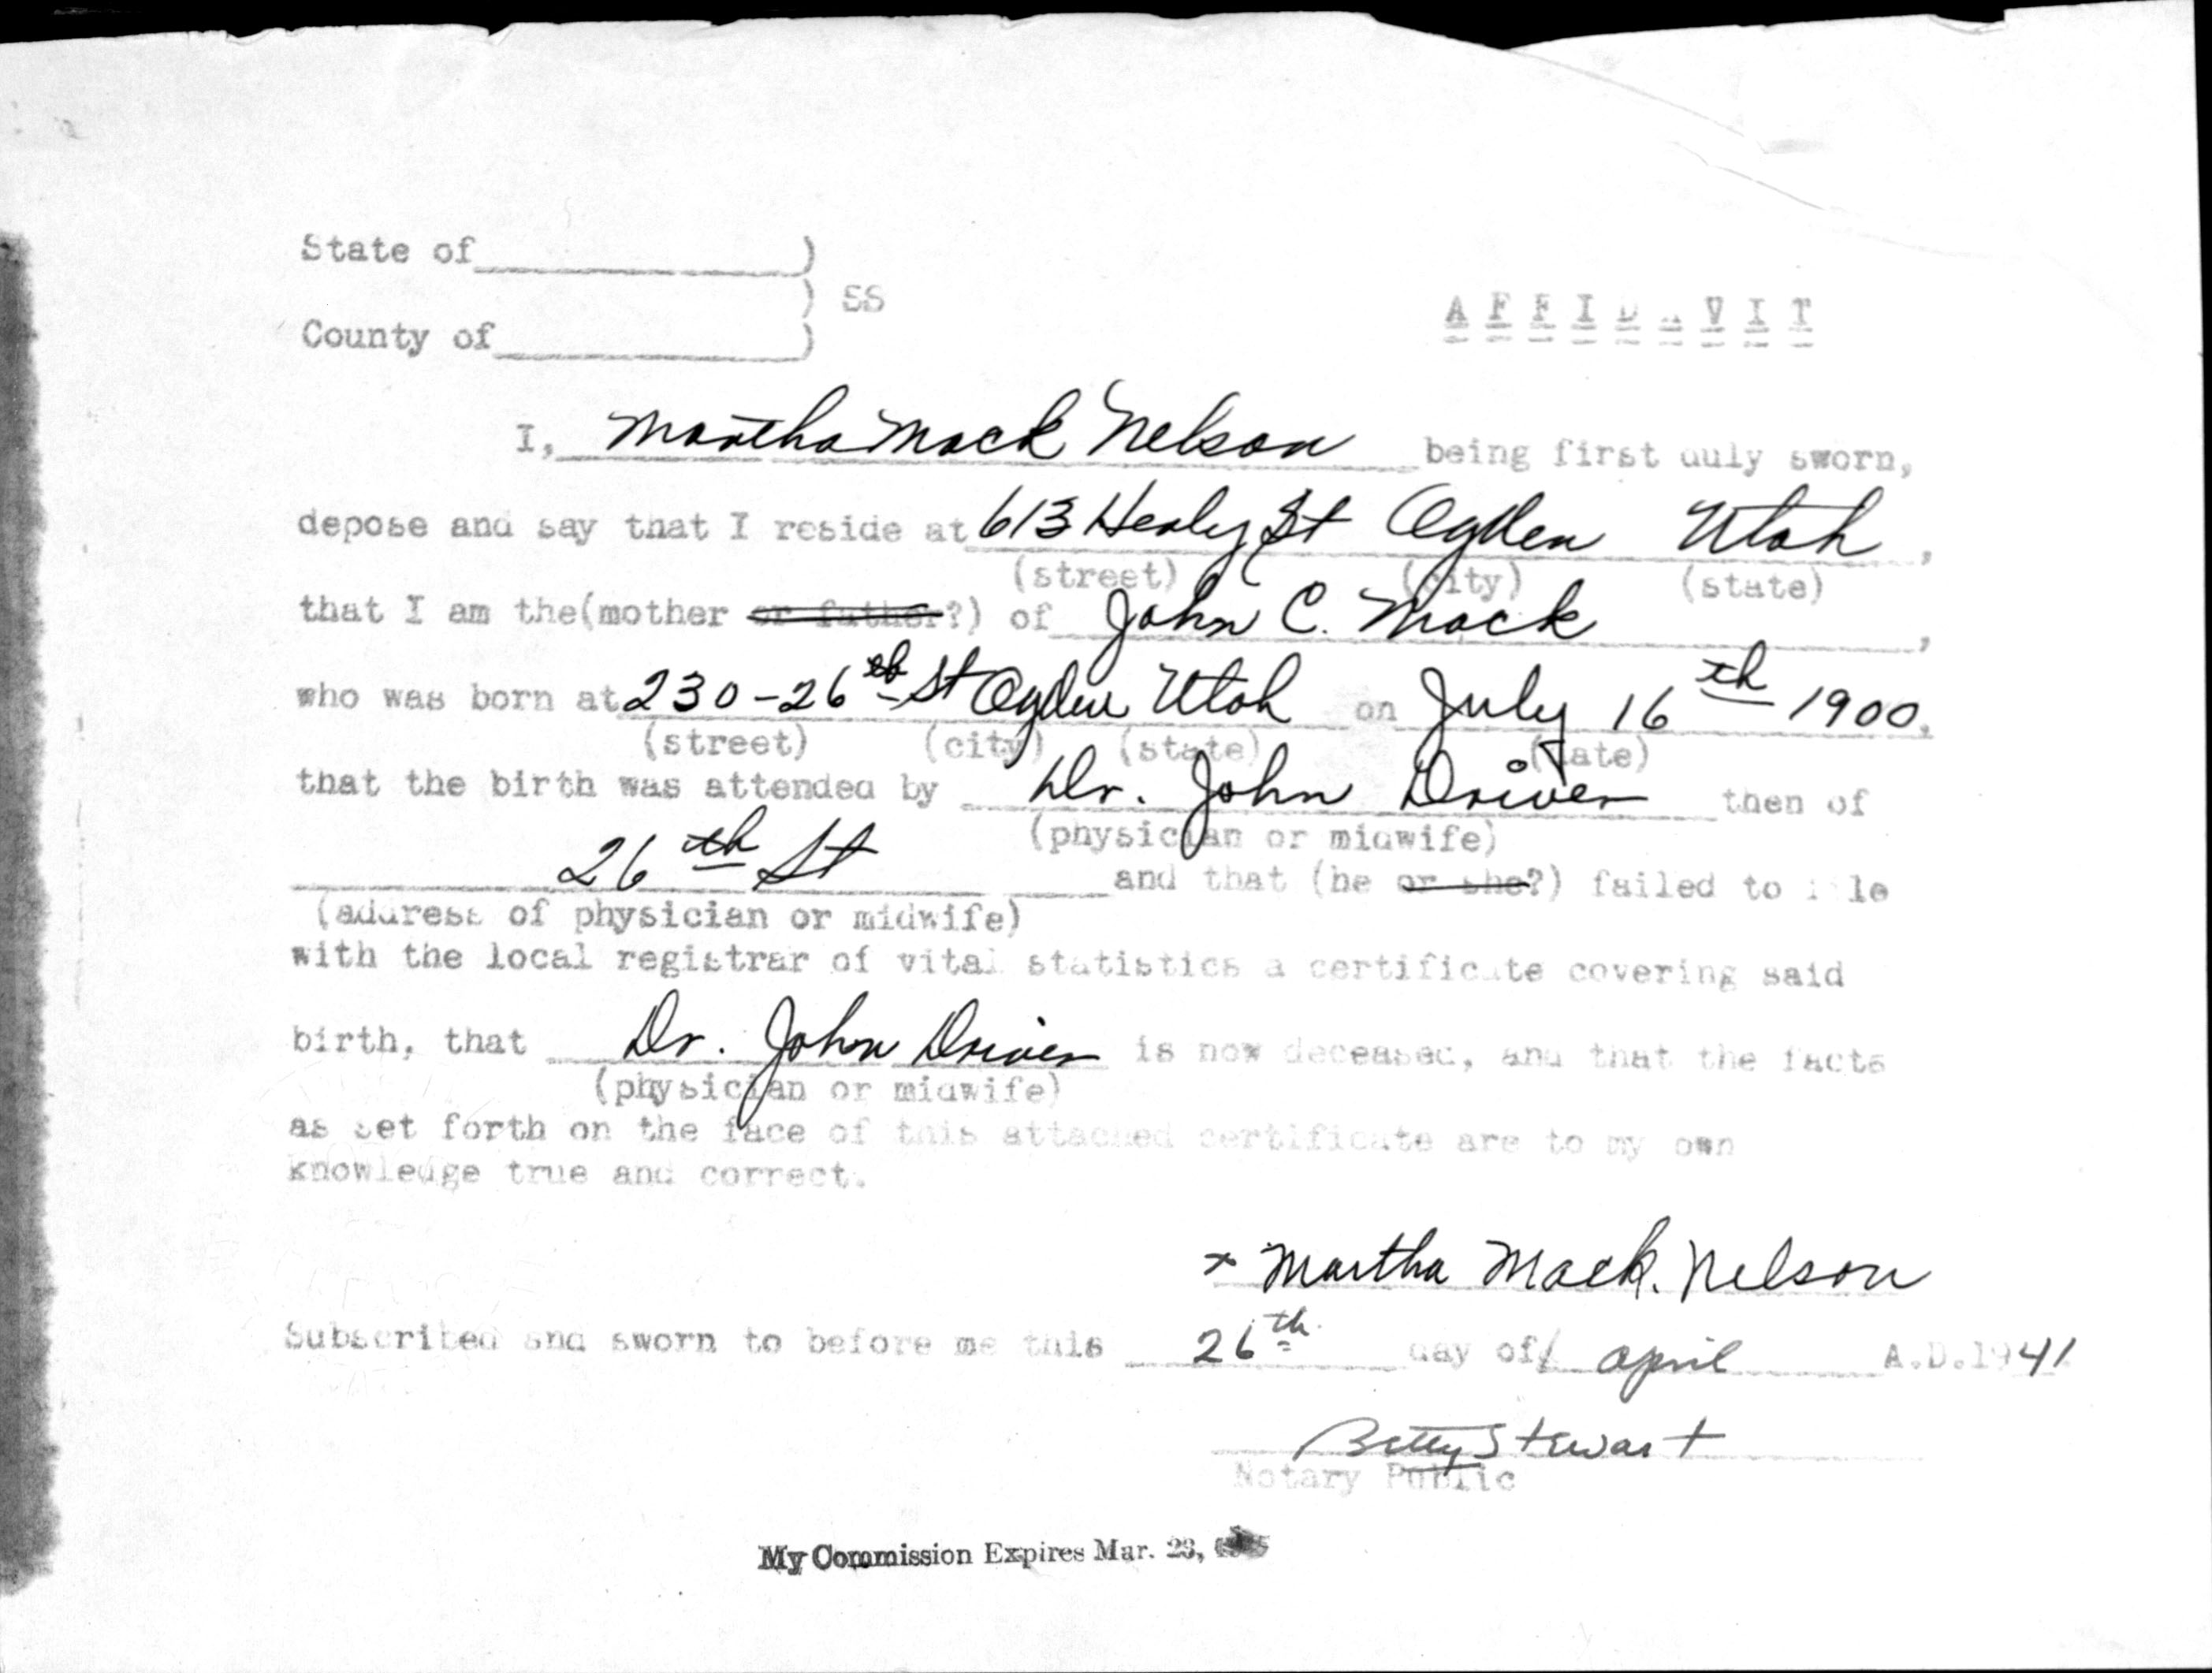 State of____________)
) SS
County of___________)
AFFIDAVIT
I, Martha Mack Nelson being first duly sworn,
depose and say that I reside at 613 Healy St Ogden Utah,
(street) (city) (state)
that I am the(mother or father?) of John C. Mack,
who was born at 230-26th St Ogden Utah on July 16th 1900,
(street) (city) (state) (date)
that the birth was attended by Dr. John Driver then of
(physician or midwife)
26th St and that (he or she?) failed to file
(address of physician or midwife)
with the local registrar of vital statistics a certificate covering said
birth, that Dr. John Driver is now deceased, and that the facts
(physician or midwife)
as set forth on the face of this attached certificate are to my own
knowledge true and correct.
x Martha Mack. Nelson
Subscribed and sworn to before me this 26th day of April A.D.1941
Betty Stewart
Notary Public
My Commission Expires Mar. 23,